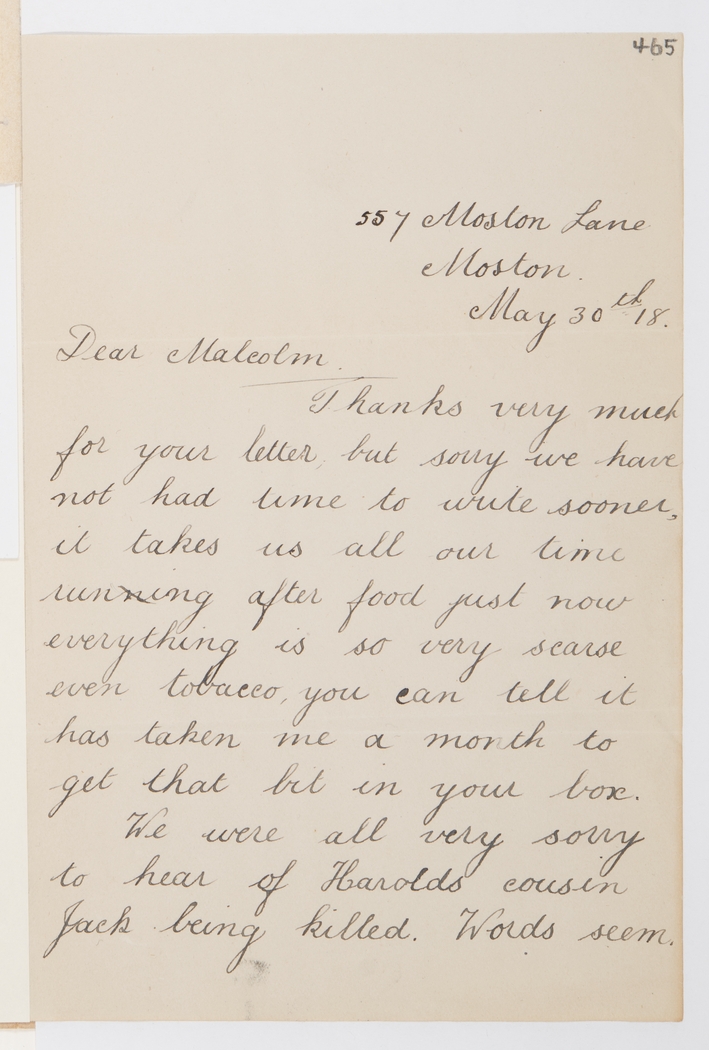 465
557 Moston Lane
Moston.
May 30th 18.
Dear Malcolm.
Thanks very much
for your letter, but sorry we have
not had time to write sooner,
it takes us all our time
running after food just now
everything is so very scarse
even tobacco, you can tell it
has taken me a month to
get that bit in your box.
We were all very sorry
to hear of Harolds cousin
Jack being killed. Words seem.